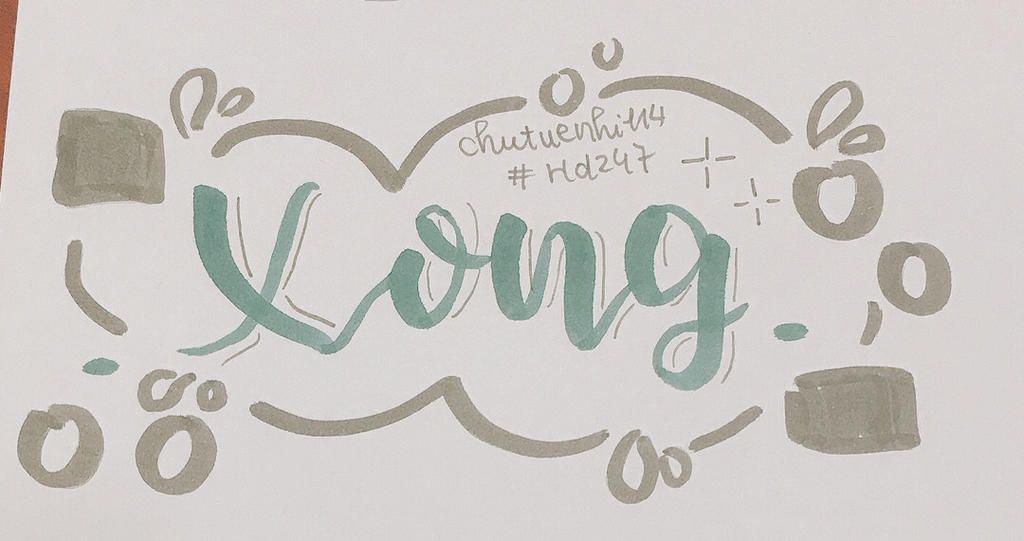 chutuenhi414
#Hd247
Xong